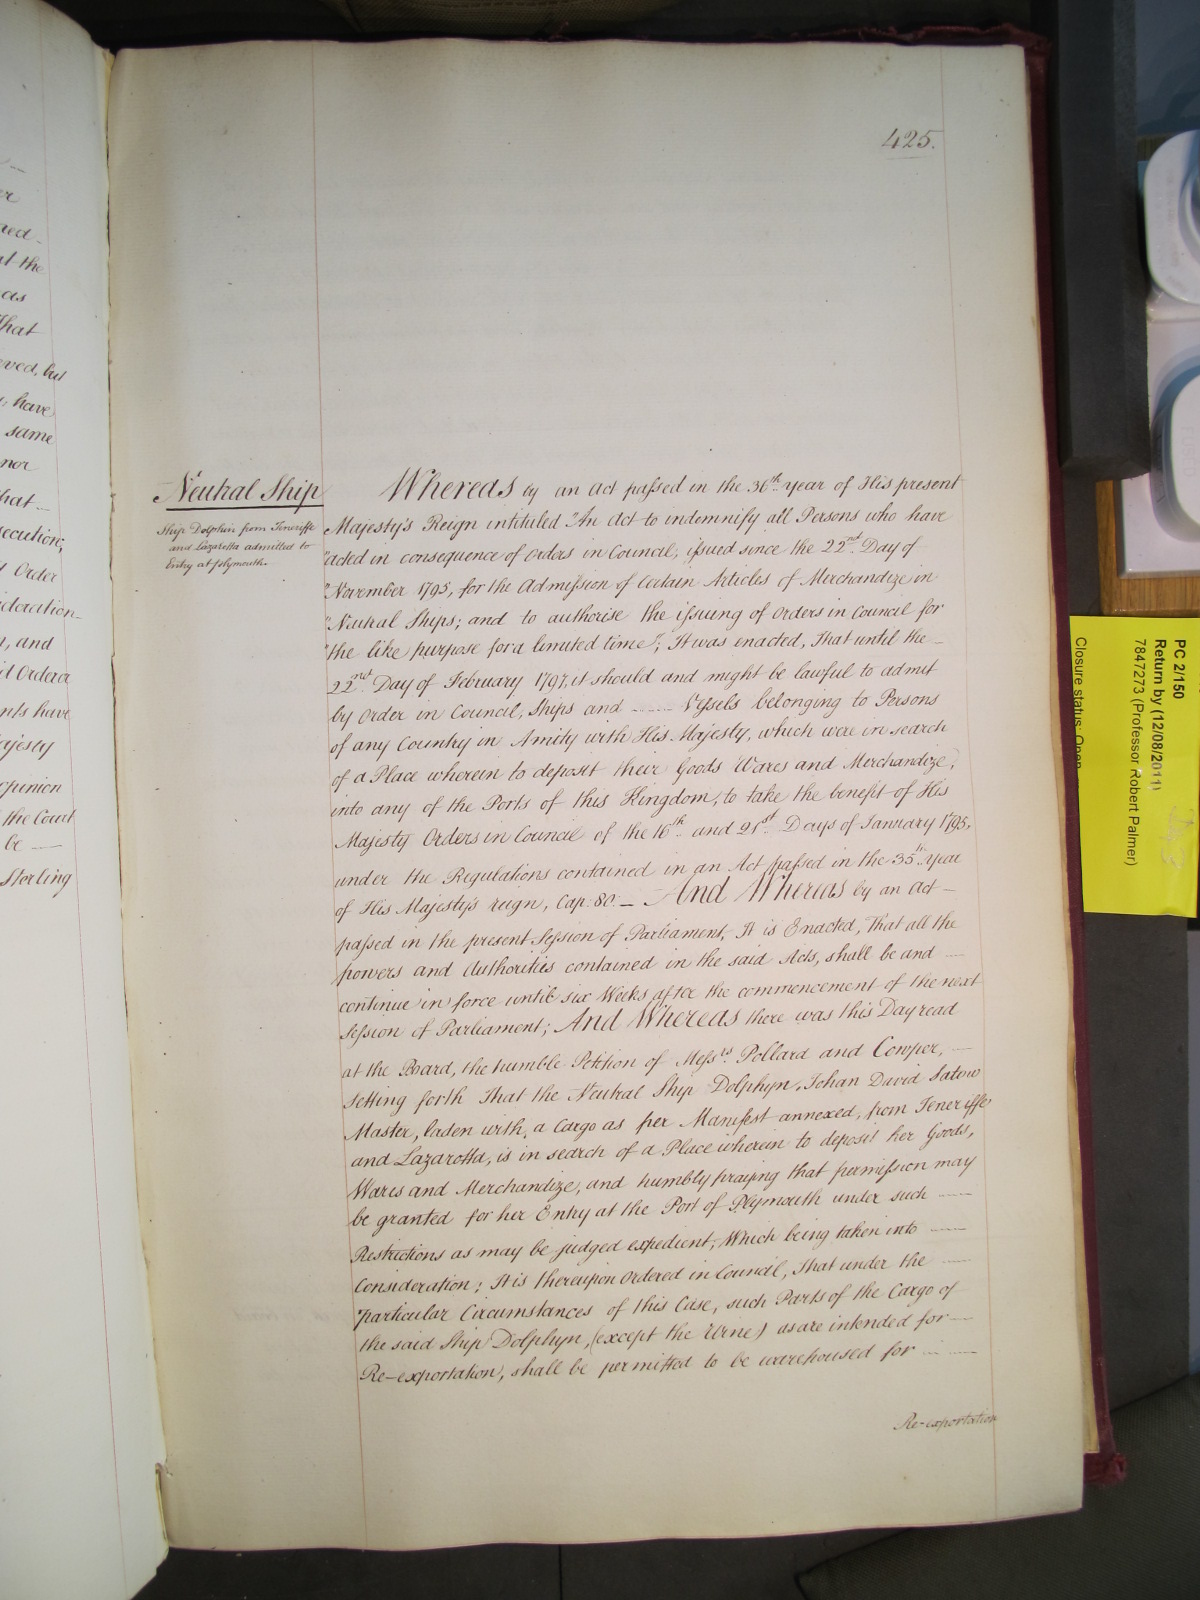 er
the
as
That
have
same
ner
hat
order
, and
nts have
ajesty
opinion
the Court
be
Sterling
425.
Neutral Ship
Ship Dolphin from Teneriffe
and Lazarotta admitted to
Entry at Plymouth.
Whereas by an Act paſsed in the 36th year of His present
Majesty's Reign intituled "An Act to indemnify all Persons who have
"acted in consequence of Orders in Council, iſsued since the 22nd Day of
"November 1795, for the Admiſsion of Certain Articles of Merchandize in
"Neutral Ships; and to authorise the iſsuing of Orders in Council for
"the like purpose for a limited time"; It was enacted, That until the
22nd Day of February 1797, it should and might be lawful to admit
by Order in Council, Ships and Veſsels belonging to Persons
of any Country in Amity with His Majesty, which were in search
of a Place wherein to deposit their Goods Wares and Merchandize,
into any of the Ports of this Kingdom, to take the benefit of His
Majesty Orders in Council of the 16th and 21st Days of January 1795,
under the Regulations contained in an Act paſsed in the 35th year
of His Majesty's reign, Cap. 80. — And Whereas by an Act —
paſsed in the present Seſsion of Parliament, It is Enacted, That all the
powers and Authorities contained in the said Acts, shall be and
continue in force until six Weeks after the commencement of the next
Seſsion of Parliament; And Whereas there was this Day read
at the Board, the humble Petition of Meſsrs Pollard and Cowper, —
setting forth That the Neutral Ship Dolphyn, Johan David Satow
Master, laden with, a Cargo as per Manifest annexed, from Teneriffe
and Lazarotta, is in search of a Place wherein to deposit her Goods,
Wares and Merchandize, and humbly praying that permiſsion may
be granted for her Entry at the Port of Plymouth under such
Restrictions as may be judged expedient; Which being taken into
Consideration; It is thereupon Ordered in Council, That under the
particular Circumstances of this Case, such Parts of the Cargo of
the said Ship Dolphyn, (except the Wine) as are intended for
Re-exportation, shall be permitted to be warehoused for
Re-exportation
PC 2/150
Return by (12/08/2011)
7847273 (Professor Robert Palmer)
Closure status: Open